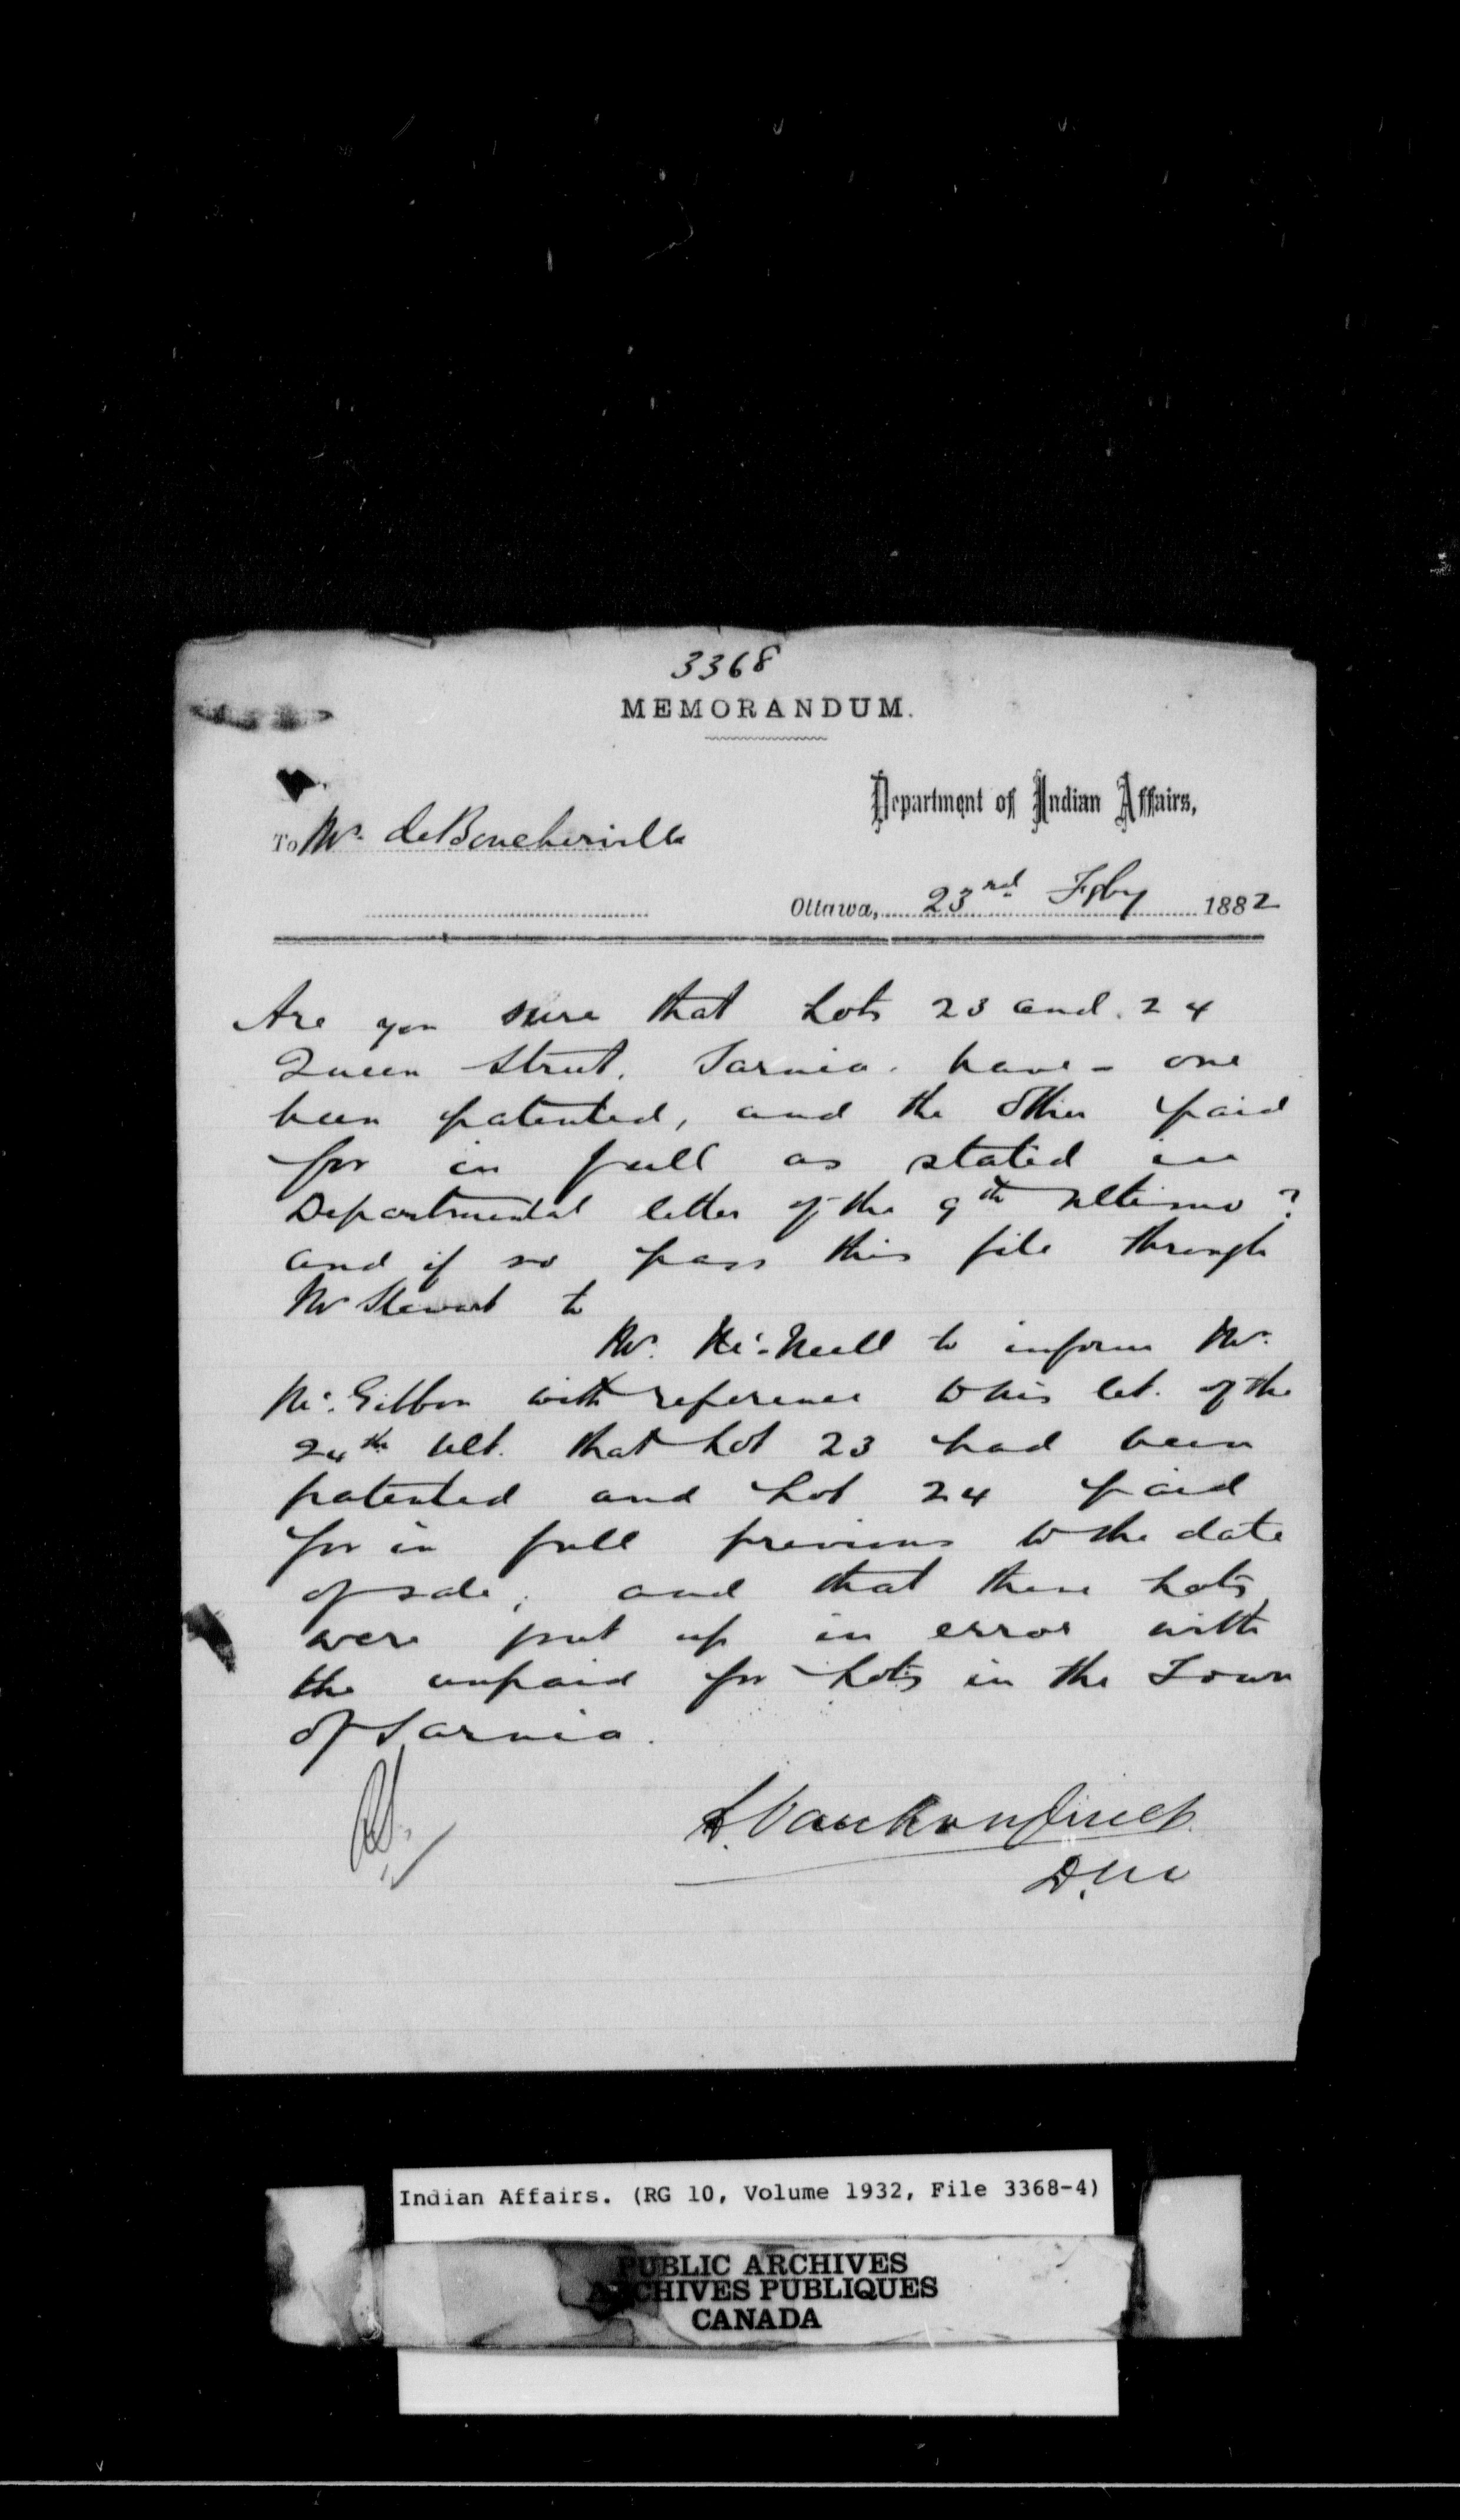 3368
MEMORANDUM.
Department of Indian Affairs,
To Mr. deBoucherville
Ottawa, 23rd Feby 1882
Are you sure that Lots 23 and 24
Queen Street, Sarnia. have - one
been patented, and the other paid
for in full as stated in
Departmental letter of the 9th ultimo?
and if so pass this file through
Mr Stewart to
Mr. Mc.Neill to inform Mr.
Mc.Gibbon with reference to his let. of the
24th ult. that Lot 23 had been
patented and Lot 24 paid
for in full previous to the date
of sale; and that these Lots
were put up in error with
the unpaid for Lots in the Town
of Sarnia.
L. Vankoughnet
D.M
Indian Affairs. (RG 10, Volume 1932, File 3368-4)
PUBLIC ARCHIVES
ARCHIVES PUBLIQUES
CANADA